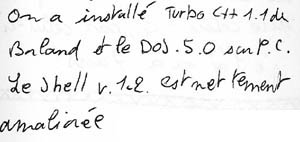 On a installé Turbo C++ 1.1 de
Borland et le DOS.5.0 sur P.C.
Le Shell v.1.2. est nettement
amaliorée